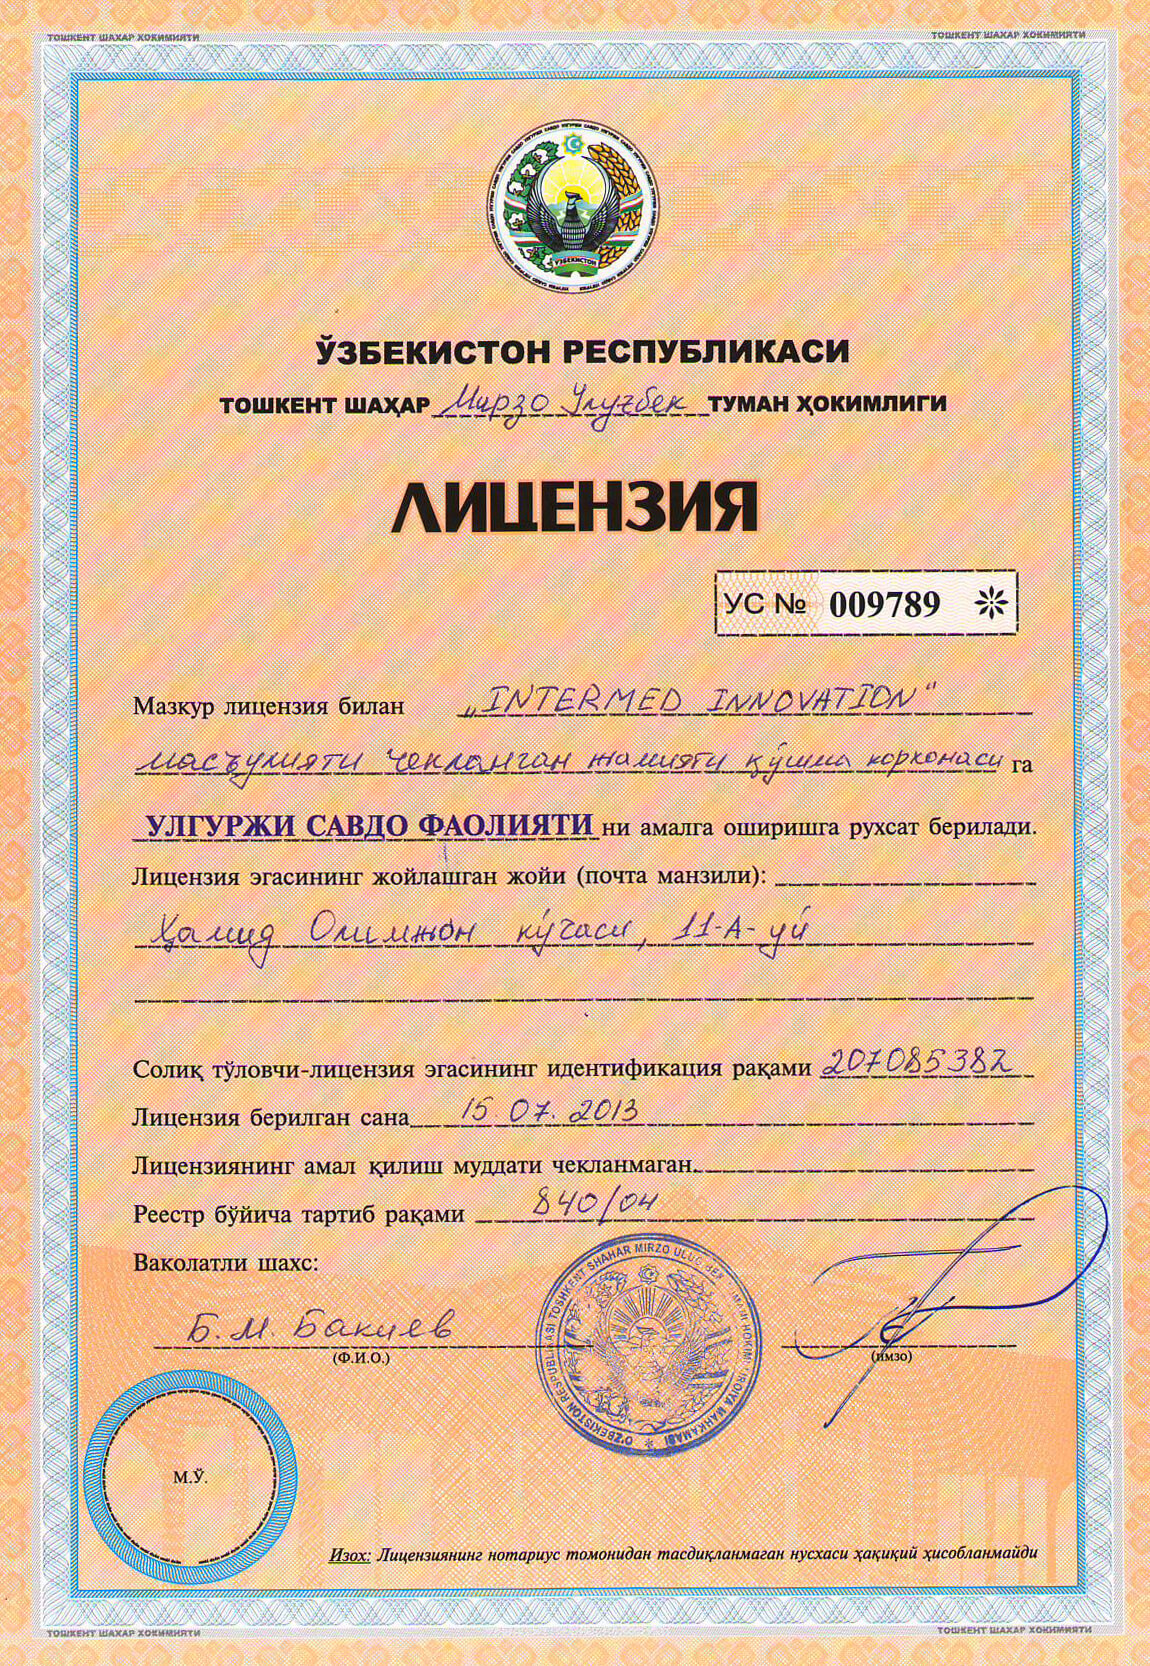 ТОШКЕНТ ШАХАР ХОКИМИЯТИ
ТОШКЕНТ ШАХАР ХОКИМИЯТИ
ЎЗБЕКИСТОН
ЎЗБЕКИСТОН РЕСПУБЛИКАСИ
ТОШКЕНТ ШАҲАР Мирзо Улуғбек ТУМАН ҲОКИМЛИГИ
ЛИЦЕНЗИЯ
УС № 009789
Мазкур лицензия билан „INTERMED INNOVATION"
масъулияти чекланган жамияти қўшма корхонаси га
УЛГУРЖИ САВДО ФАОЛИЯТИ ни амалга оширишга рухсат берилади.
Лицензия эгасининг жойлашган жойи (почта манзили):
Ҳамид Олимжон кўчаси, 11-А-уй
Солиқ тўловчи-лицензия эгасининг идентификация рақами 207085382
Лицензия берилган сана 15.07.2013
Лицензиянинг амал қилиш муддати чекланмаган.
Реестр бўйича тартиб рақами 840/04
Ваколатли шахс:
Б.М. Бакиев
(Ф.И.О.)
(имзо)
O'ZBEKISTON RESPUBLIKASI TOSHKENT SHAHAR MIRZO ULUG'BEK
М.Ў.
Изох: Лицензиянинг нотариус томонидан тасдиқланмаган нусхаси ҳақиқий ҳисобланмайди
ТОШКЕНТ ШАХАР ХОКИМИЯТИ
ТОШКЕНТ ШАХАР ХОКИМИЯТИ